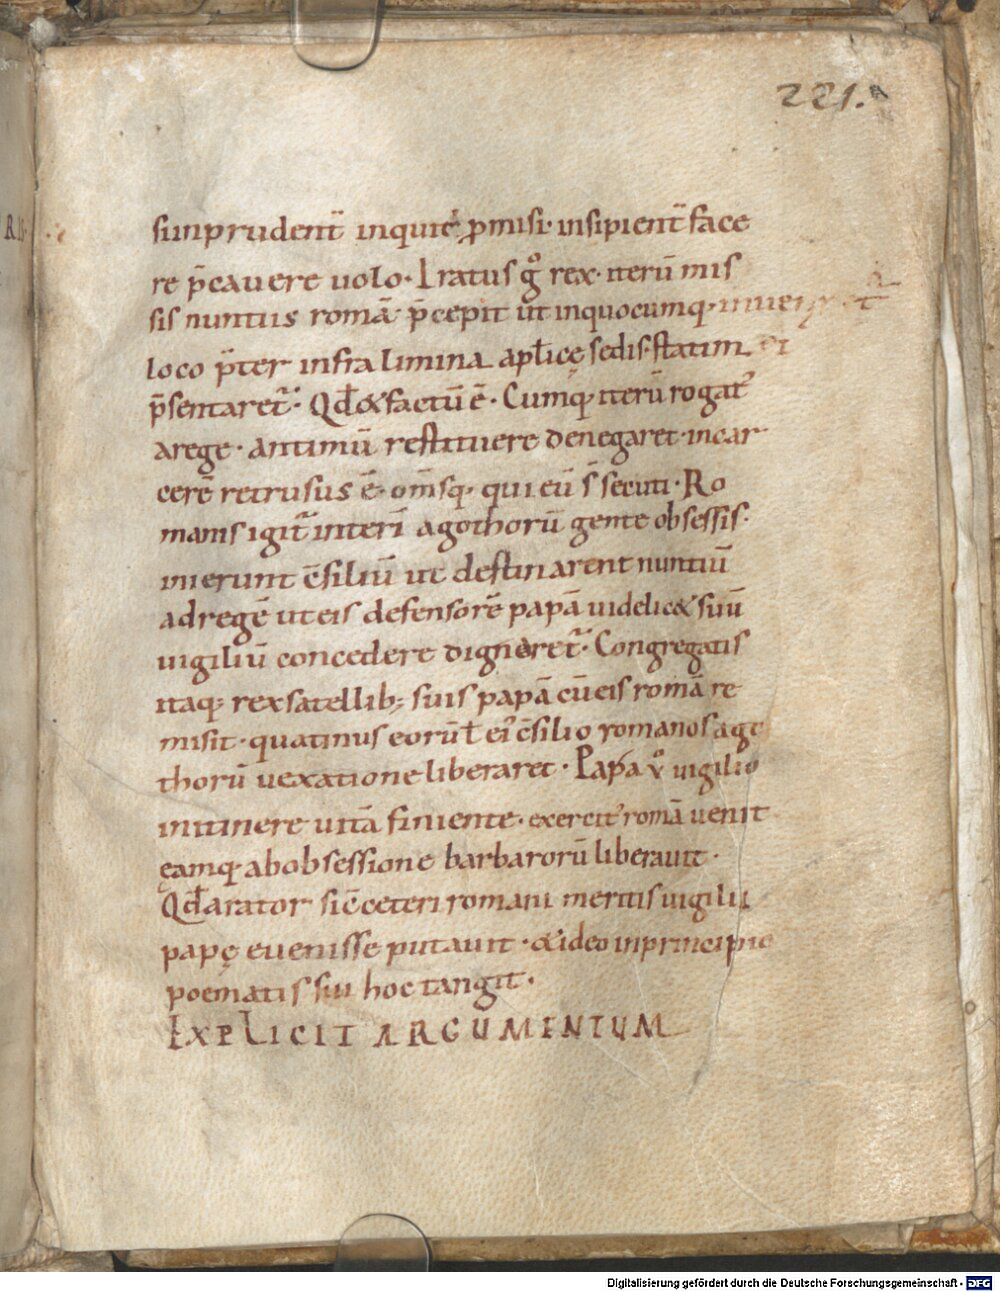 221.
siinprudent̄ inquiē p̄misi· insipient̄ face
re p̄cavere volo· Iratus gͦ rex· iterū mis
sis nuntiis romā p̄cepit ut inquocumq;
loco p̄ter infra limina apl̄icę sedis· statim
p̄sentaret᷑· Qd̄ & factū ē· Cumq; iterū rogat᷑
arege· antimū restituere denegaret· incar
cerē retrusus ē· om̄sq; qui eū s̄ secuti· Ro
manis igit᷑ interī agothorū gente obsessis·
inierunt c̄siliū ut destinarent nuntiū
adregē uteis defensorē papā videlic& suū
vigiliū concedere dignaret᷑· Congregatis
itaq; rex satellib; suis papā cū eis romā re
misit· quatinus eorū l̄ ei᷒ c̄silio romanos a go
thorū vexatione liberaret· Papa vͦ vigilio
initinere vitā finiente· exercit᷒ romā venit
eamq; abobsessione barbarorū liberavit·
Qd̄ arator sic̄ ceteri romani meritis vigilii
papę evenisse putavit· & ideo inprincipio
poematis sui hoc tangit·
EXPLICIT ARGUMENTUM
Digitalisierung gefördert durch die Deutsche Forschungsgemeinschaft - DFG